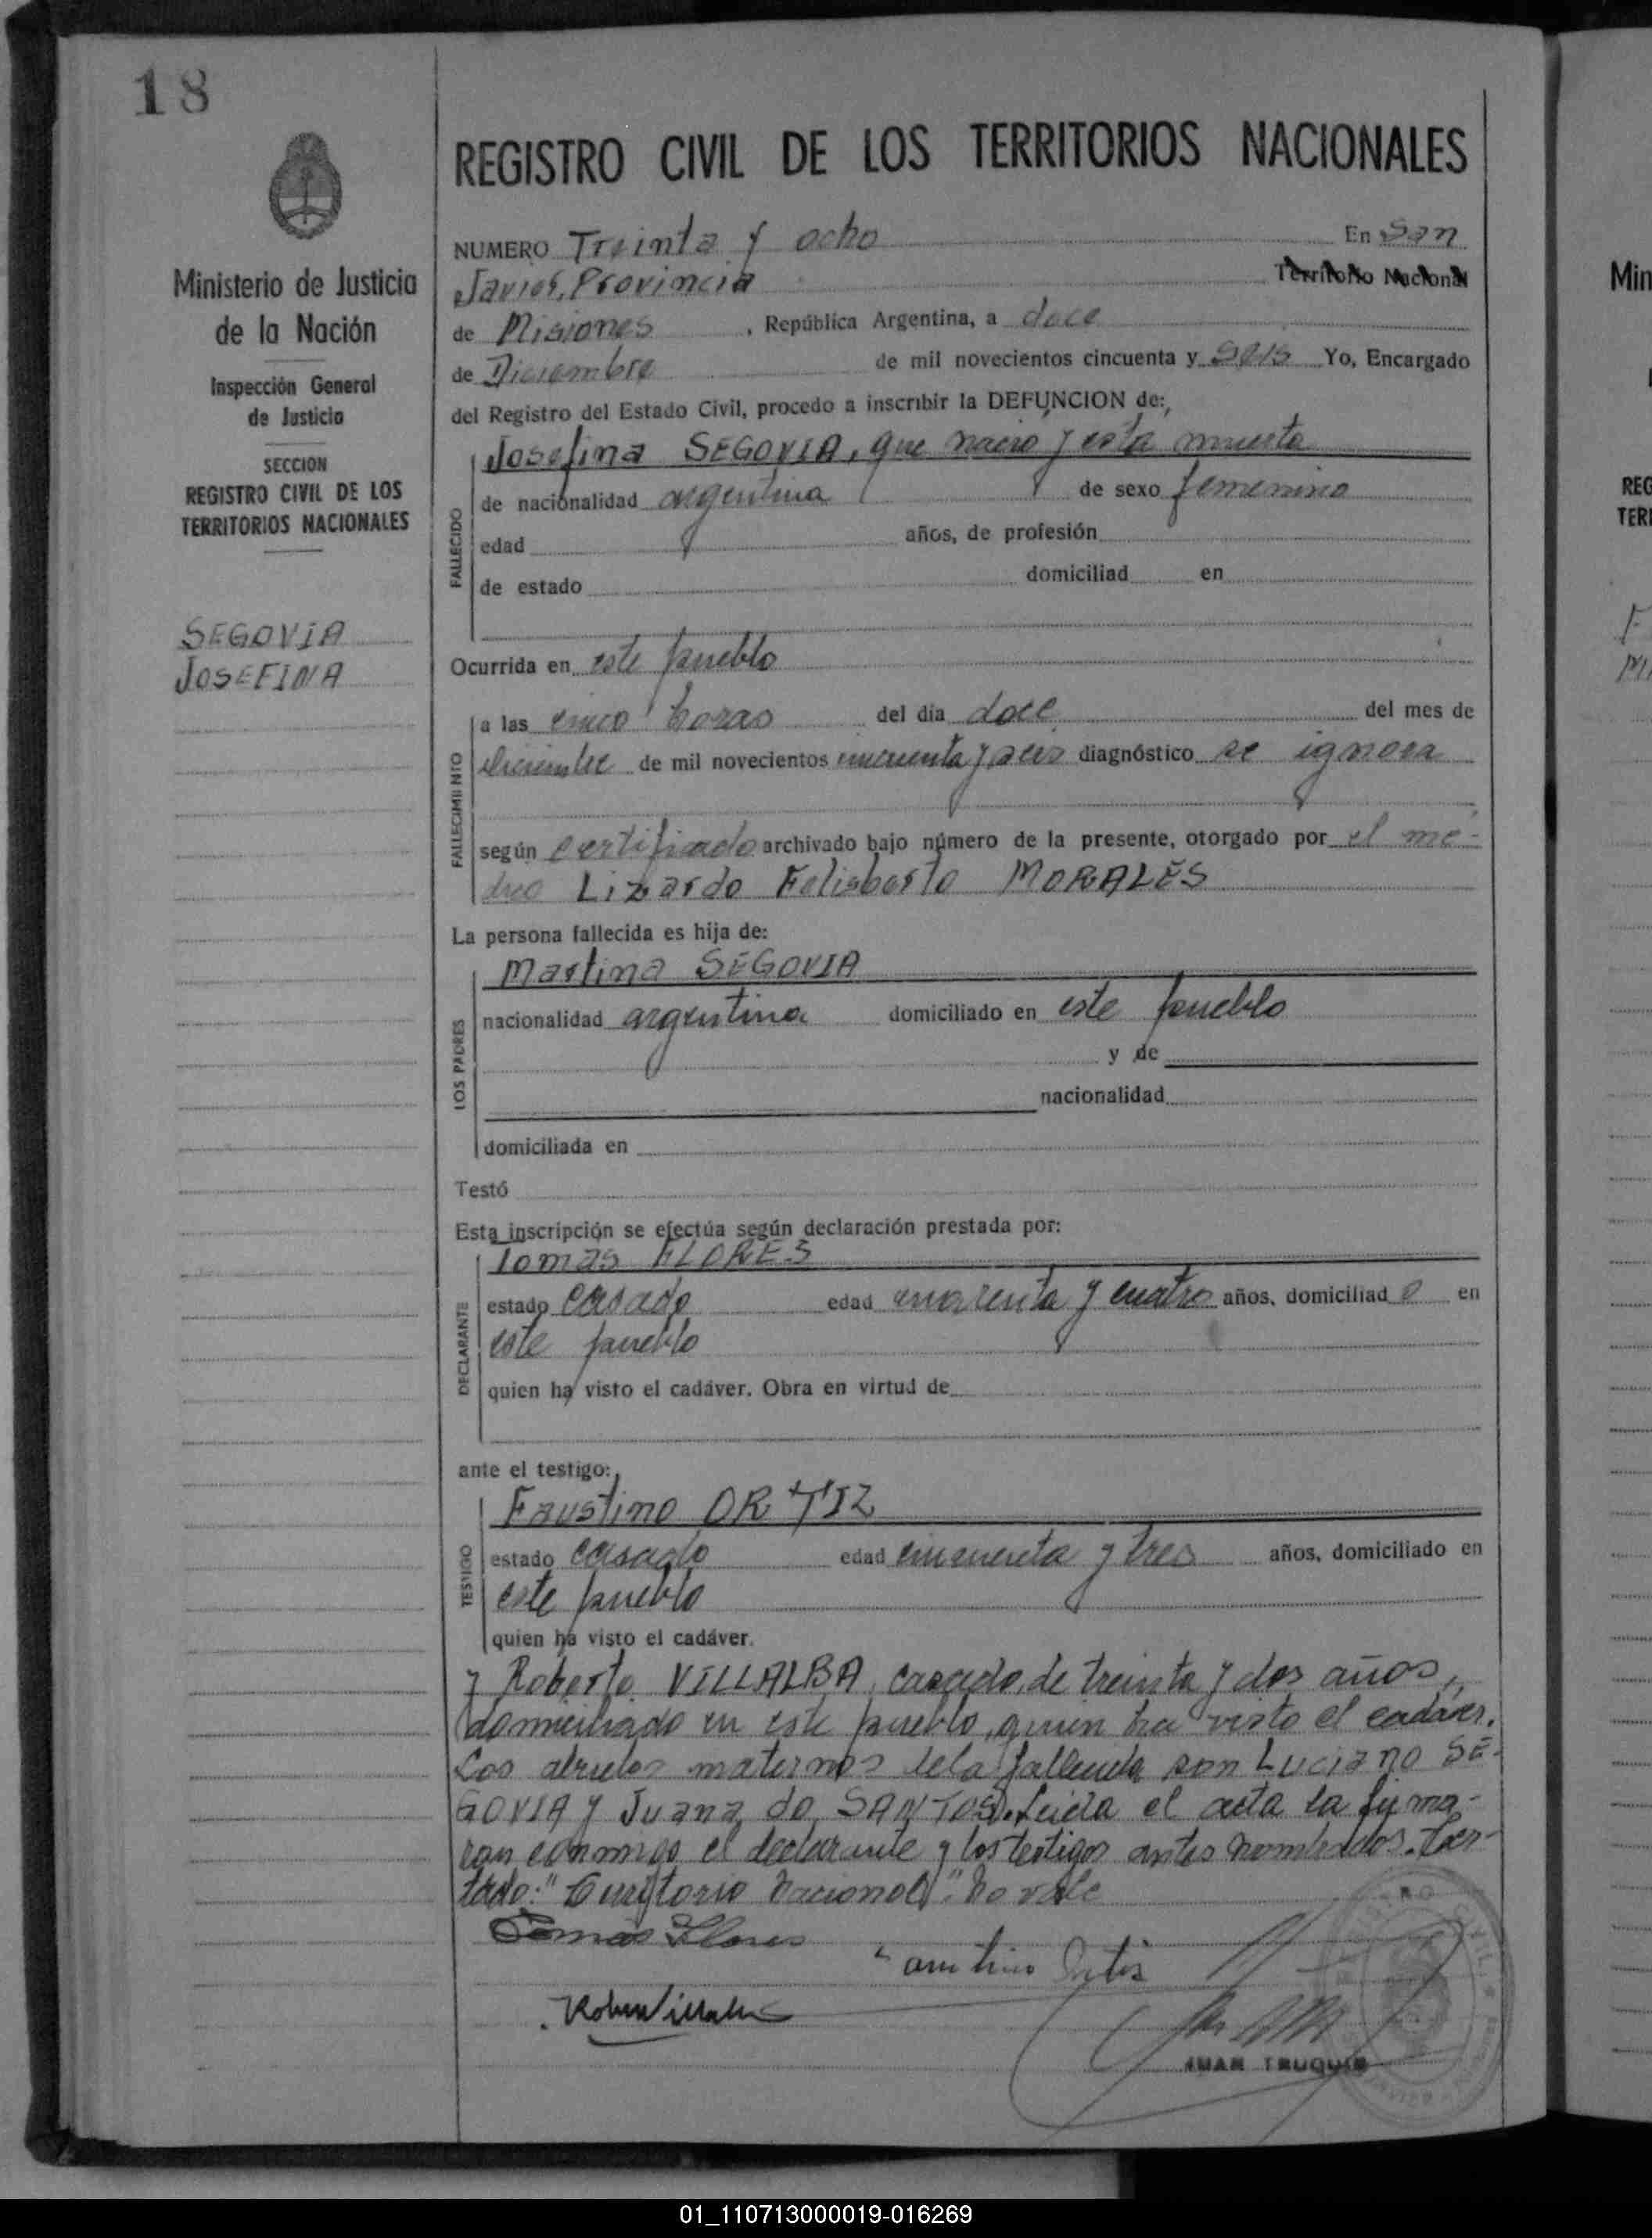 18
REGISTRO CIVIL DE LOS TERRITORIOS NACIONALES
Ministerio de Justicia
de la Nación
Inspección General
de Justicia
SECCION
REGISTRO CIVIL DE LOS
TERRITORIOS NACIONALES
SEGOVIA
JOSEFINA
NUMERO Treinta y ocho En San
Javier, Provincia Territorio Nacional
de Misiones , República Argentina, a doce
de Diciembre de mil novecientos cincuenta y seis Yo, Encargado
del Registro del Estado Civil, procedo a inscribir la DEFUNCION de:
Josefina SEGOVIA, que nació y está muerta
de nacionalidad argentina de sexo femenino
FALLECIDO
edad años, de profesión
de estado domiciliad en
Ocurrida en este pueblo
a las cinco horas del día doce del mes de
diciembre de mil novecientos cincuenta y seis diagnóstico se ignora
FALLECIMIENTO
según certificado archivado bajo número de la presente, otorgado por el mé-
dico Lizardo Felisberto MORALES
La persona fallecida es hija de:
Martina SEGOVIA
nacionalidad argentina domiciliado en este pueblo
LOS PADRES
y de
nacionalidad
domiciliada en
Testó
Esta inscripción se efectúa según declaración prestada por:
Tomás FLORES
estado casado edad cuarenta y cuatro años, domiciliad o en
DECLARANTE
este pueblo
quien ha visto el cadáver. Obra en virtud de
ante el testigo:
Faustino ORTIZ
estado casado edad cincuenta y tres años, domiciliado en
TESTIGO
este pueblo
quien ha visto el cadáver.
y Roberto VILLALBA, casado, de treinta y dos años,
domiciliado en este pueblo, quien ha visto el cadáver.
Los abuelos maternos de la fallecida son Luciano SE-
GOVIA y Juana do SANTOS. Leida el acta la firma-
ron conmigo el declarante y los testigos antes nombrados. Tes-
tado: "Territorio Nacional". No vale
Tomás Flores
Faustino Ortiz
JUAN TRUQUIN
REGISTRO CIVIL
Min
REG
TERR
01_110713000019-016269